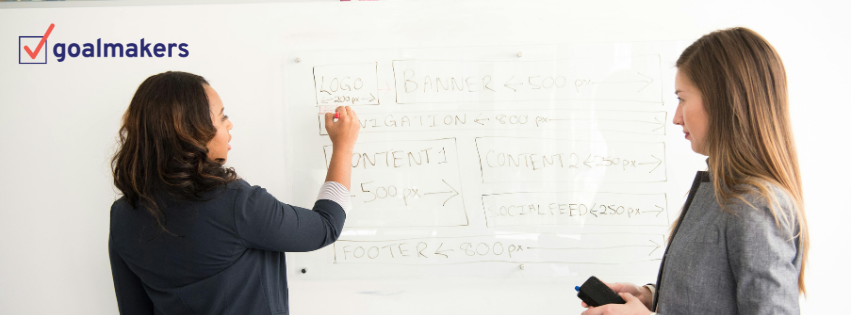 goalmakers
LOGO
←200px→
BANNER ← 500 px →
VIGATION ← 800 px →
CONTENT 1
←500px→
CONTENT 2 ←250px→
SOCIAL FEED ←250px→
FOOTER ← 800px →